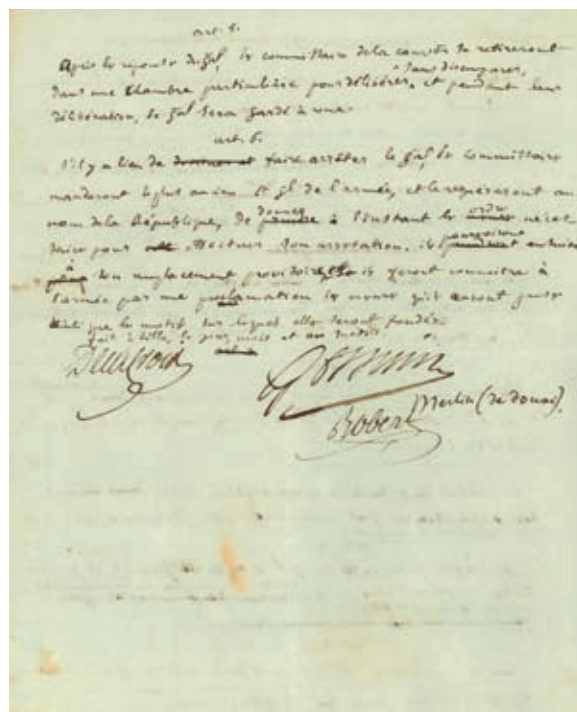 art. 5.
Après la réponse du Gal, les commissaires de la conv.on se retireront
sans désemparer,
dans une chambre particulière pour délibérer, et pendant leur
délibération, le Gal sera gardé à vue.
art. 6.
S'il y a lieu de faire arrêter le Gal, les commissaires
manderont le plus ancien Lt gl. de l'armée, et le requéreront au
donner ordres
nom de la République, de à l'instant les néces-
saires pour effectuer son arrestation. ils pourvoiront ensuite
à son remplacement provisoire, et ils feront connaître à
l'armée par une proclamation les mesures qu'ils auront prises
ainsi que les motifs sur lesquels elles seront fondées.
fait à Lille, les jour, mois et an susdits
Delacroix
Gossuin
Merlin (de Douai).
Robert